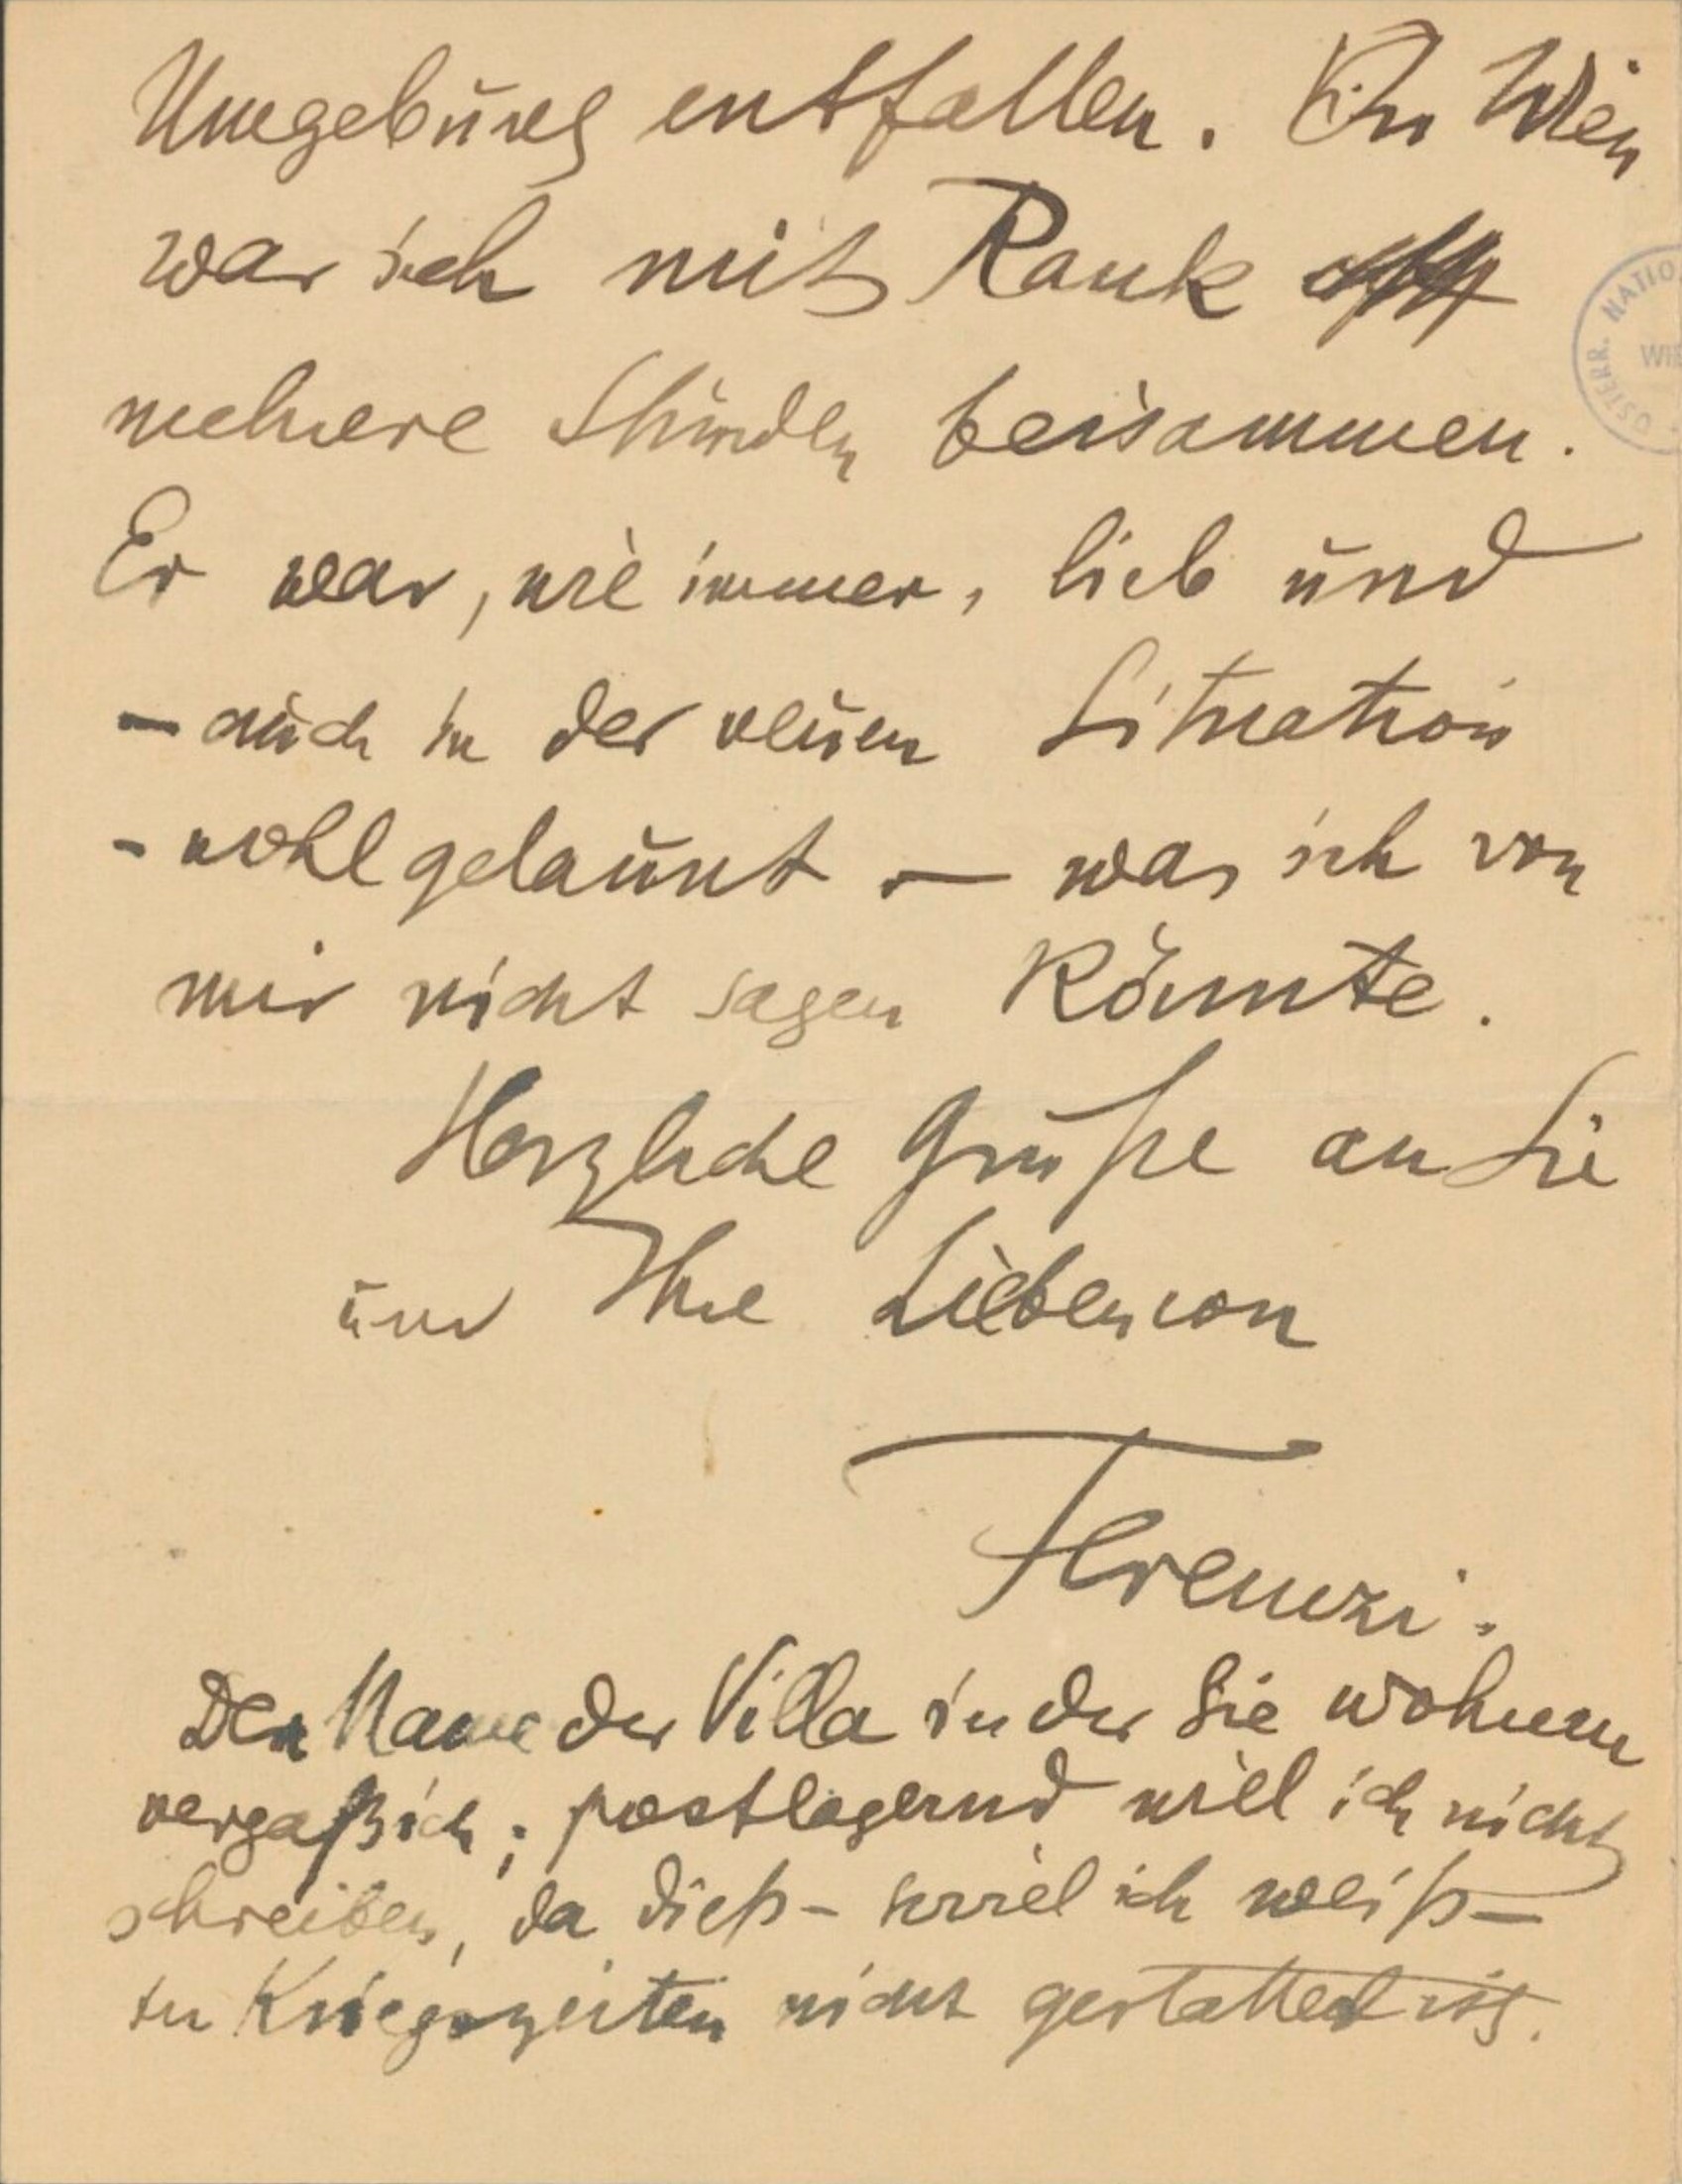 Umgebung entfallen. In Wien
war ich mit Rank
mehrere Stunden beisammen.
Er war, wie immer, lieb und
– auch in der neuen Situation
- wohlgelaunt – was ich von
mir nicht sagen könnte.
Herzliche Grüße an Sie
und Ihre Lieben von
Ferenczi.
Den Name der Villa in der Sie wohnen
vergaß ich; postlagernd will ich nicht
schreiben, da dieß – soviel ich weiß –
in Kriegszeiten nicht gestattet ist.
ÖSTERR. NATIO
WIE